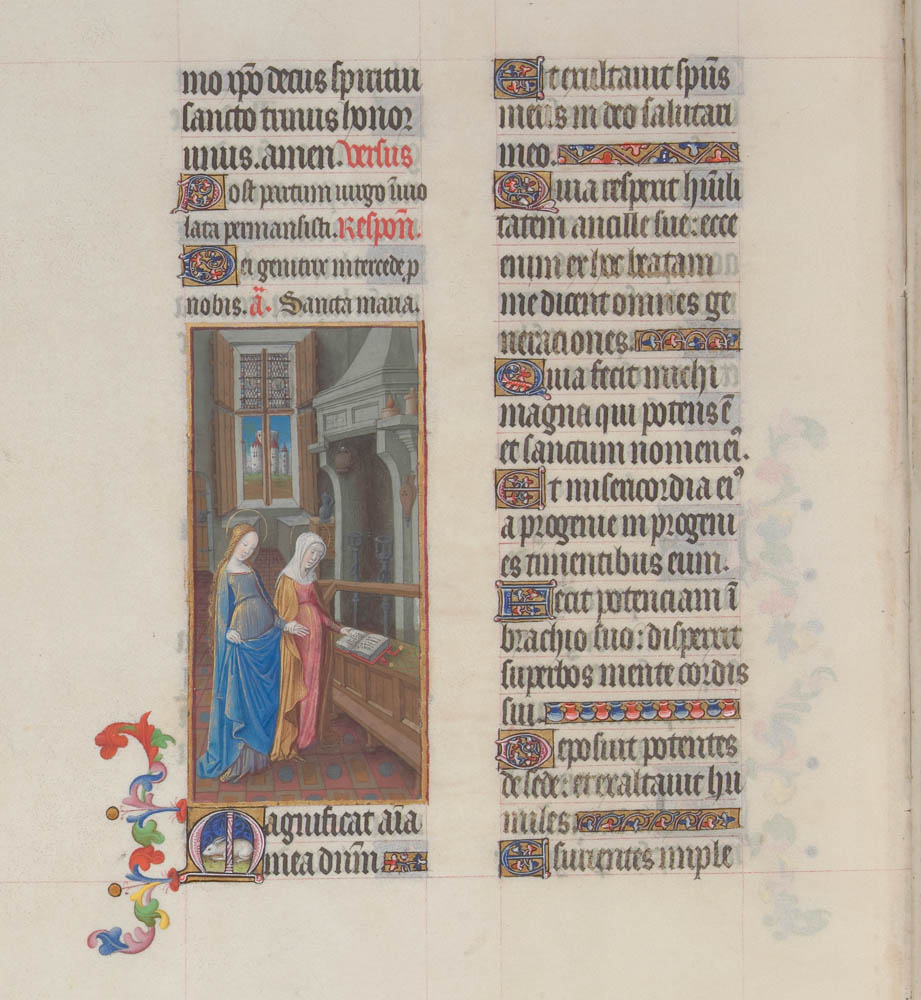 mo xpo decus spiritui
sancto trinus honor
unus. amen. Versus
Post partum uirgo īuio
lata permansisti. Respon̄.
Dei genitrix intercede p̄
nobis. a͞. Sancta maria.
Magnificat aīa
mea dn̄m
Et exultauit sp̄us
meus in deo salutari
meo.
Quia respexit hūili
tatem ancille sue: ecce
enim ex hoc beatam
me dicent om̄nes ge
neraciones.
Quia fecit michi
magna qui potens ē
et sanctum nomen ei9.
Et misericordia ei9
a progenie in progeni
es timentibus eum.
Fecit potenciam ī
brachio suo: dispersit
superbos mente cordis
sui.
Deposuit potentes
de sede: et exaltauit hu
miles.
Esurientes imple